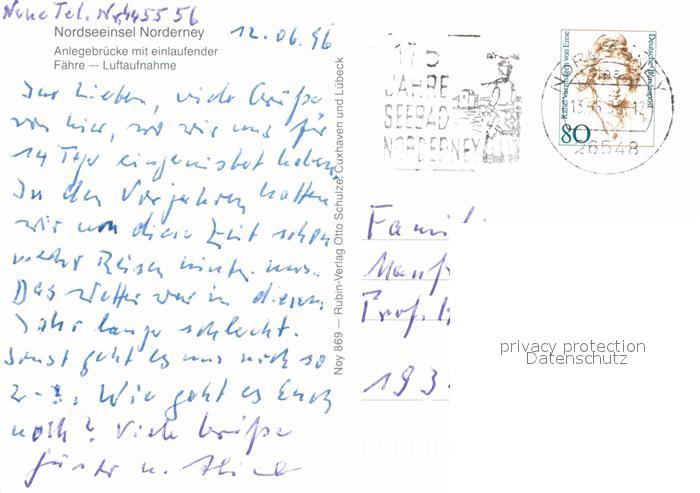 Neue Tel. Nr. 455 56
Nordseeinsel Norderney
12.06.96
Anlegebrücke mit einlaufender
Fähre — Luftaufnahme
Ihr Lieben, viele Grüße
von hier, wo wir uns für
14 Tge eingenistet haben.
In den Vorjahren hatten
wir um diese Zeit schon
mehr Reisen hinter uns.
Das Wetter war in diesem
Jahr lange schlecht.
Sonst geht es uns noch so
2-3. Wie geht es Euch
noch? Viele Grüße
Günter u.
Noy 869 — Rubin-Verlag Otto Schulze, Cuxhaven und Lübeck
175
JAHRE
SEEBAD
NORDERNEY
Rahel Varnhagen von Ense
Deutsche Bundespost
80
NORDERNEY
26548
Famil
Manf
Prof.
193
privacy protection
Datenschutz